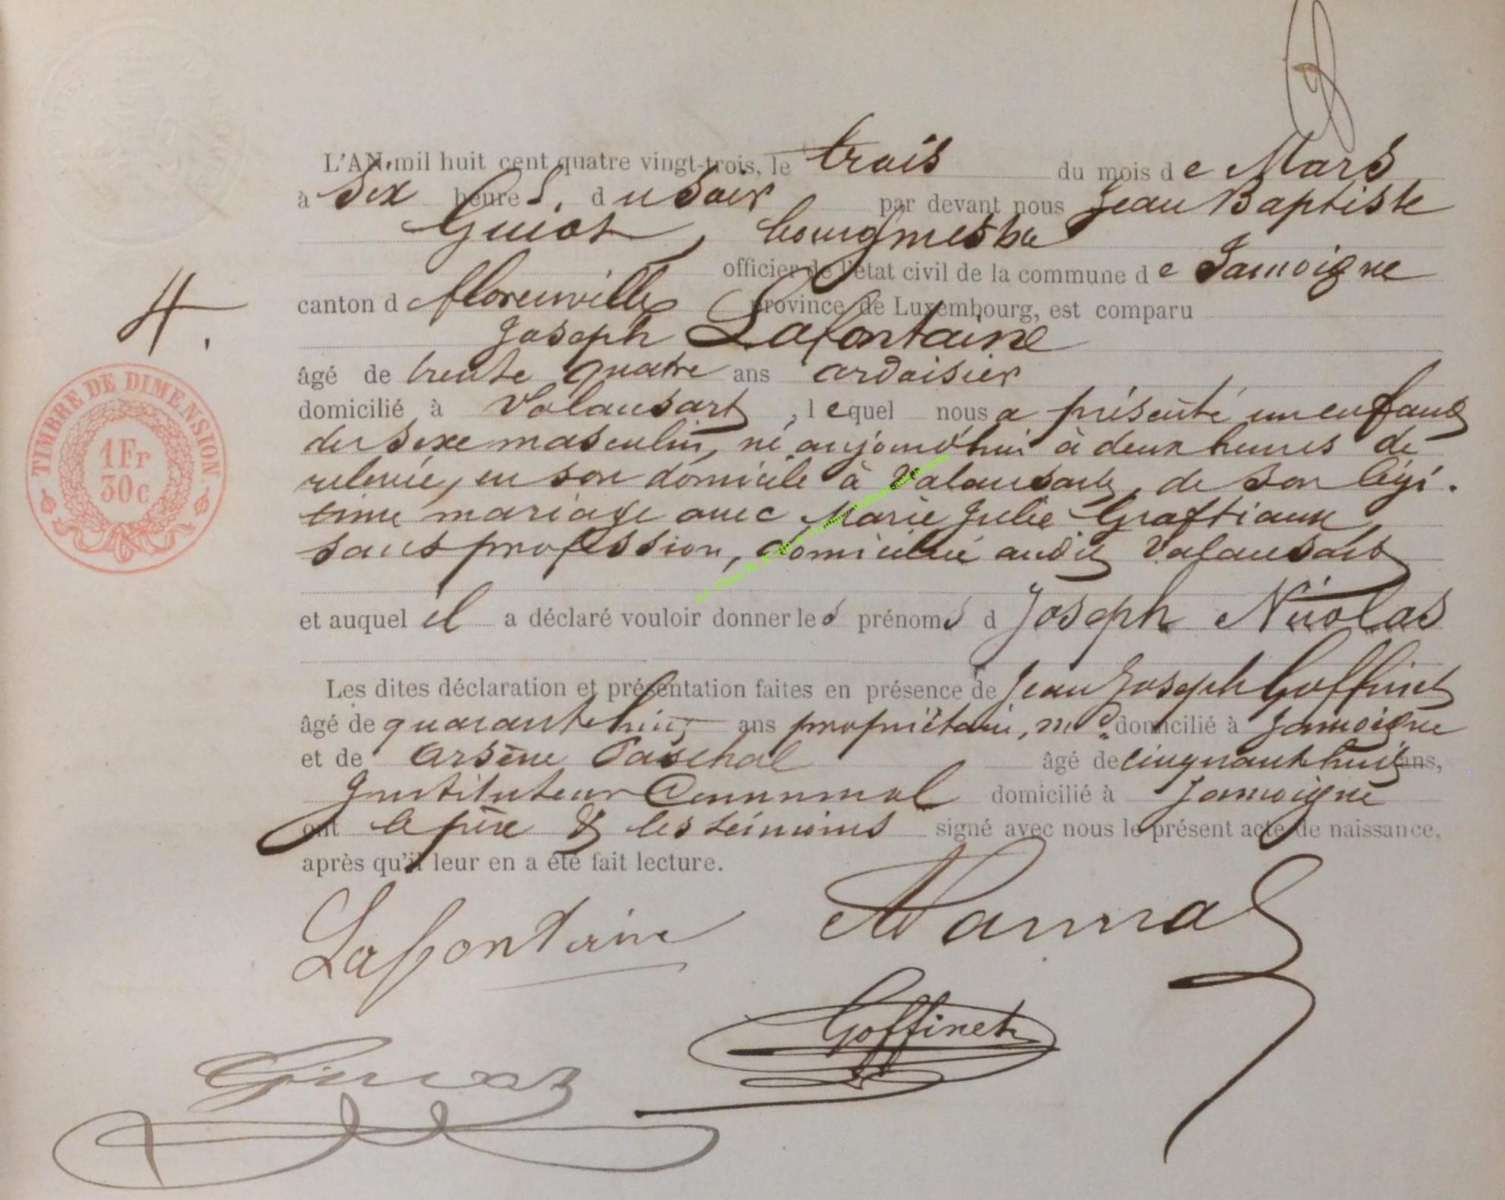 L'AN mil huit cent quatre vingt-trois, le trois du mois de Mars
à Six heures, du Soir par devant nous Jean Baptiste
Guiot, bourgmestre
officier de l'état civil de la commune de Jamoigne
canton d florenville province de Luxembourg, est comparu
Joseph Lafontaine
âgé de trente quatre ans ardoisier
domicilié à Valansart, lequel nous a présenté un enfant
du sexe masculin, né aujourd'hui à deux heures de
relevée, en son domicile à Valansart, de son légi-
time mariage avec Marie Julie Graftiaux
sans profession, domiciliée audit Valansart
et auquel il a déclaré vouloir donner les prénoms d Joseph Nicolas
Les dites déclaration et présentation faites en présence de Jean Joseph Goffinet
âgé de quarante huit ans propriétaire, domicilié à Jamoigne
et de Arsène Paschal âgé de cinquante huit ans,
Instituteur Communal domicilié à Jamoigne
ont le père & les témoins signé avec nous le présent acte de naissance,
après qu'il leur en a été fait lecture.
4.
TIMBRE DE DIMENSION
1 Fr
30 c
Lafontaine
Goffinet
Guiot